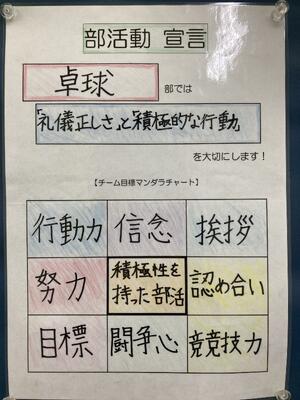 部活動 宣言
卓球
部では
「礼儀正しさ」と「積極的な行動」
を大切にします！
【チーム目標マンダラチャート】
行動力 信念 挨拶
努力 積極性を 認め合い
持った部活
目標 闘争心 競技力